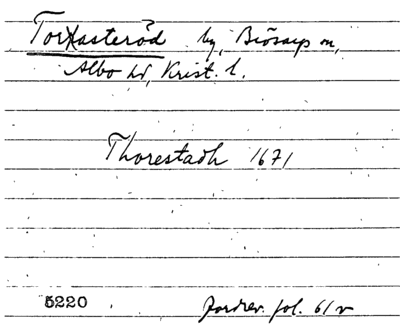 Torkasteröd by, Biösarps sn,
Albo hd, Krist. l.
Thorestadh 1671
5220 Jordrev. fol. 61 v